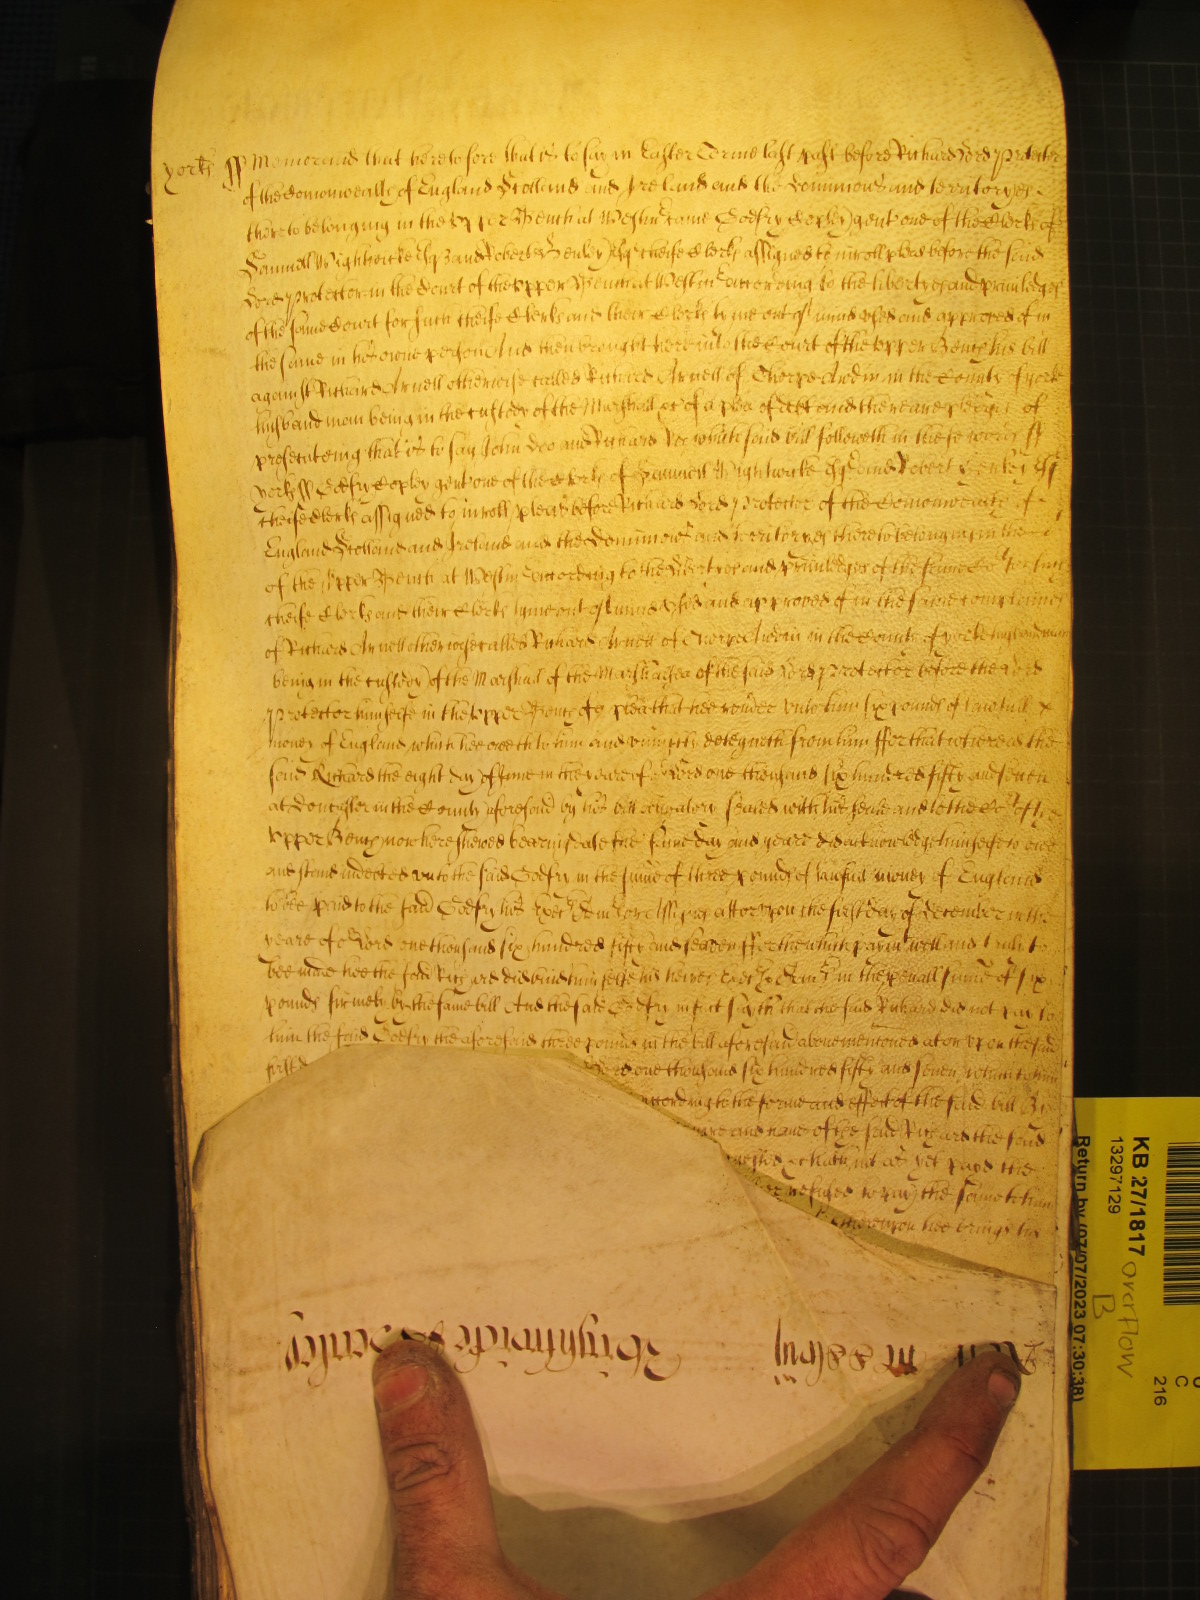 yorks ss Memorand that heretofore that is to say in Easter Terme last past before Richard Lord Protector
of the Comonwealth of England Scotland and Ireland and the Dominions and territoryes
thereto belonging in the Upper Bench at Westm came Godfry Copley gent one of the Clerks of
Samuell Wightwicke Esqr and Robert Henley Esqr cheife Clerks assigned to inroll pleas before the said
Lord Protector in the Court of the Upper Bench at Westm according to the libertyes and priviledges
of the same Court for such cheife Clerks and their Clerks tyme out of minde used and approved of in
the same in his owne person And then brought here into the Court of the Upper Bench his bill
against Richard Arnell otherwise called Richard Arnell of Thorpe Awdin in the County of yorke
husbandman being in the custody of the Marshall &c of a plea of debt and there are pledges of
prosecuteing that is to say John Doo and Richard Roo which said bill followeth in these words ss
yorks ss Godfry Copley gent one of the Clerks of Samuell Wightwicke Esqr and Robert Henley Esqr
cheife Clerks assigned to inroll pleas before Richard Lord Protector of the Comonwealth of
England Scotland and Ireland and the Dominions and territoryes thereto belonging in the
of the Upper Bench at Westm according to the libertyes and priviledges of the same for such
cheife Clerks and their Clerks tyme out of minde used and approved of in the same complaines
of Richard Arnell otherwise called Richard Arnell of Thorpe Awdin in the County of yorke husbandman
being in the custody of the Marshall of the Marshalsea of the said Lord Protector before the Lord
Protector himselfe in the Upper Bench of a plea that hee render unto him six pounds of lawfull
money of England which hee oweth to him and uniustly deteyneth from him ffor that whereas the
said Richard the eight day of June in the yeare of or Lord one thousand six hundred fifty and seven
at Doncaster in the County aforesaid by his bill obligatory sealed with his seale and to the Ct of the
Upper Bench now here shewed beareing date the same day and yeare did acknowledge himselfe to owe
and stand indebted unto the said Godfry in the summe of three pounds of lawfull money of England
to bee paid to the said Godfry his Exec Admr or Assignes att or upon the first day of December in the
yeare of or Lord one thousand six hundred fifty and seaven ffor the which paym well and truly to
bee made hee the said Richard did bind himselfe his heires Exec & Admr in the penall summe of six
pounds firmely by the same bill And the said Godfry in fact sayth that the said Richard did not pay to
him the said Godfry the aforesaid three pounds in the bill aforesaid abovementioned at or upon the said
first Lord one thousand six hundred fifty and seven, which to him
according to the forme and effect of the said bill By
and name of the said Richard the said
hath not as yet payd the
refused to pay the same to him
thereupon hee brings his
Wightwicke & Henley
KB 27/1817 overflow B
13297129
Return by (07/07/2023 07:30:38)
C
216